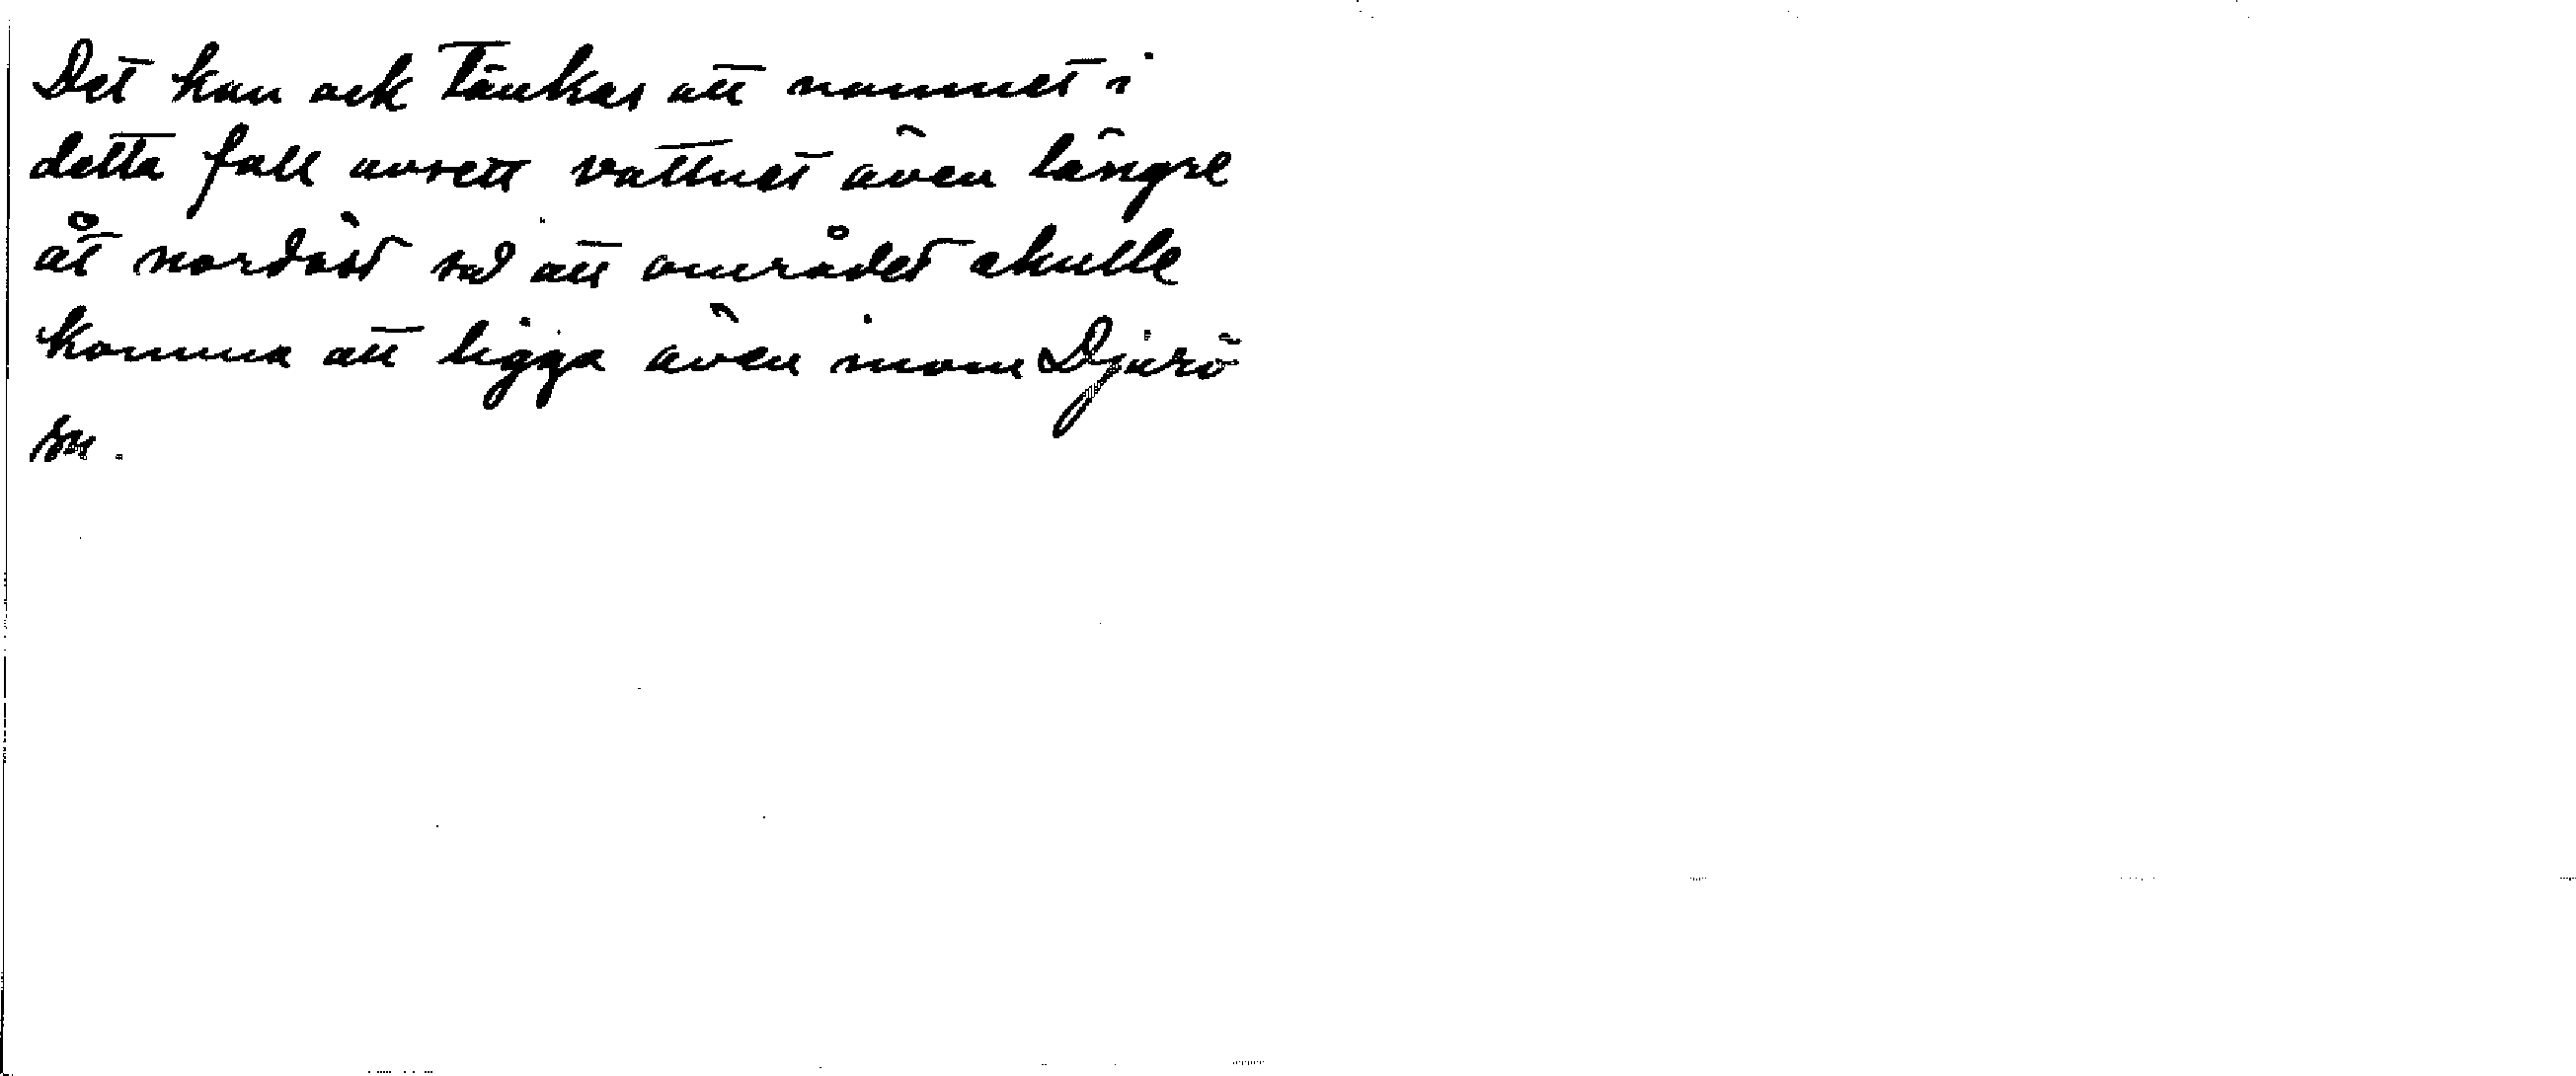 Det kan ock tänkas att namnet i
detta fall avsett vattnet även längre
åt nordöst så att området skulle
komma att ligga även inom Djurö
sn.